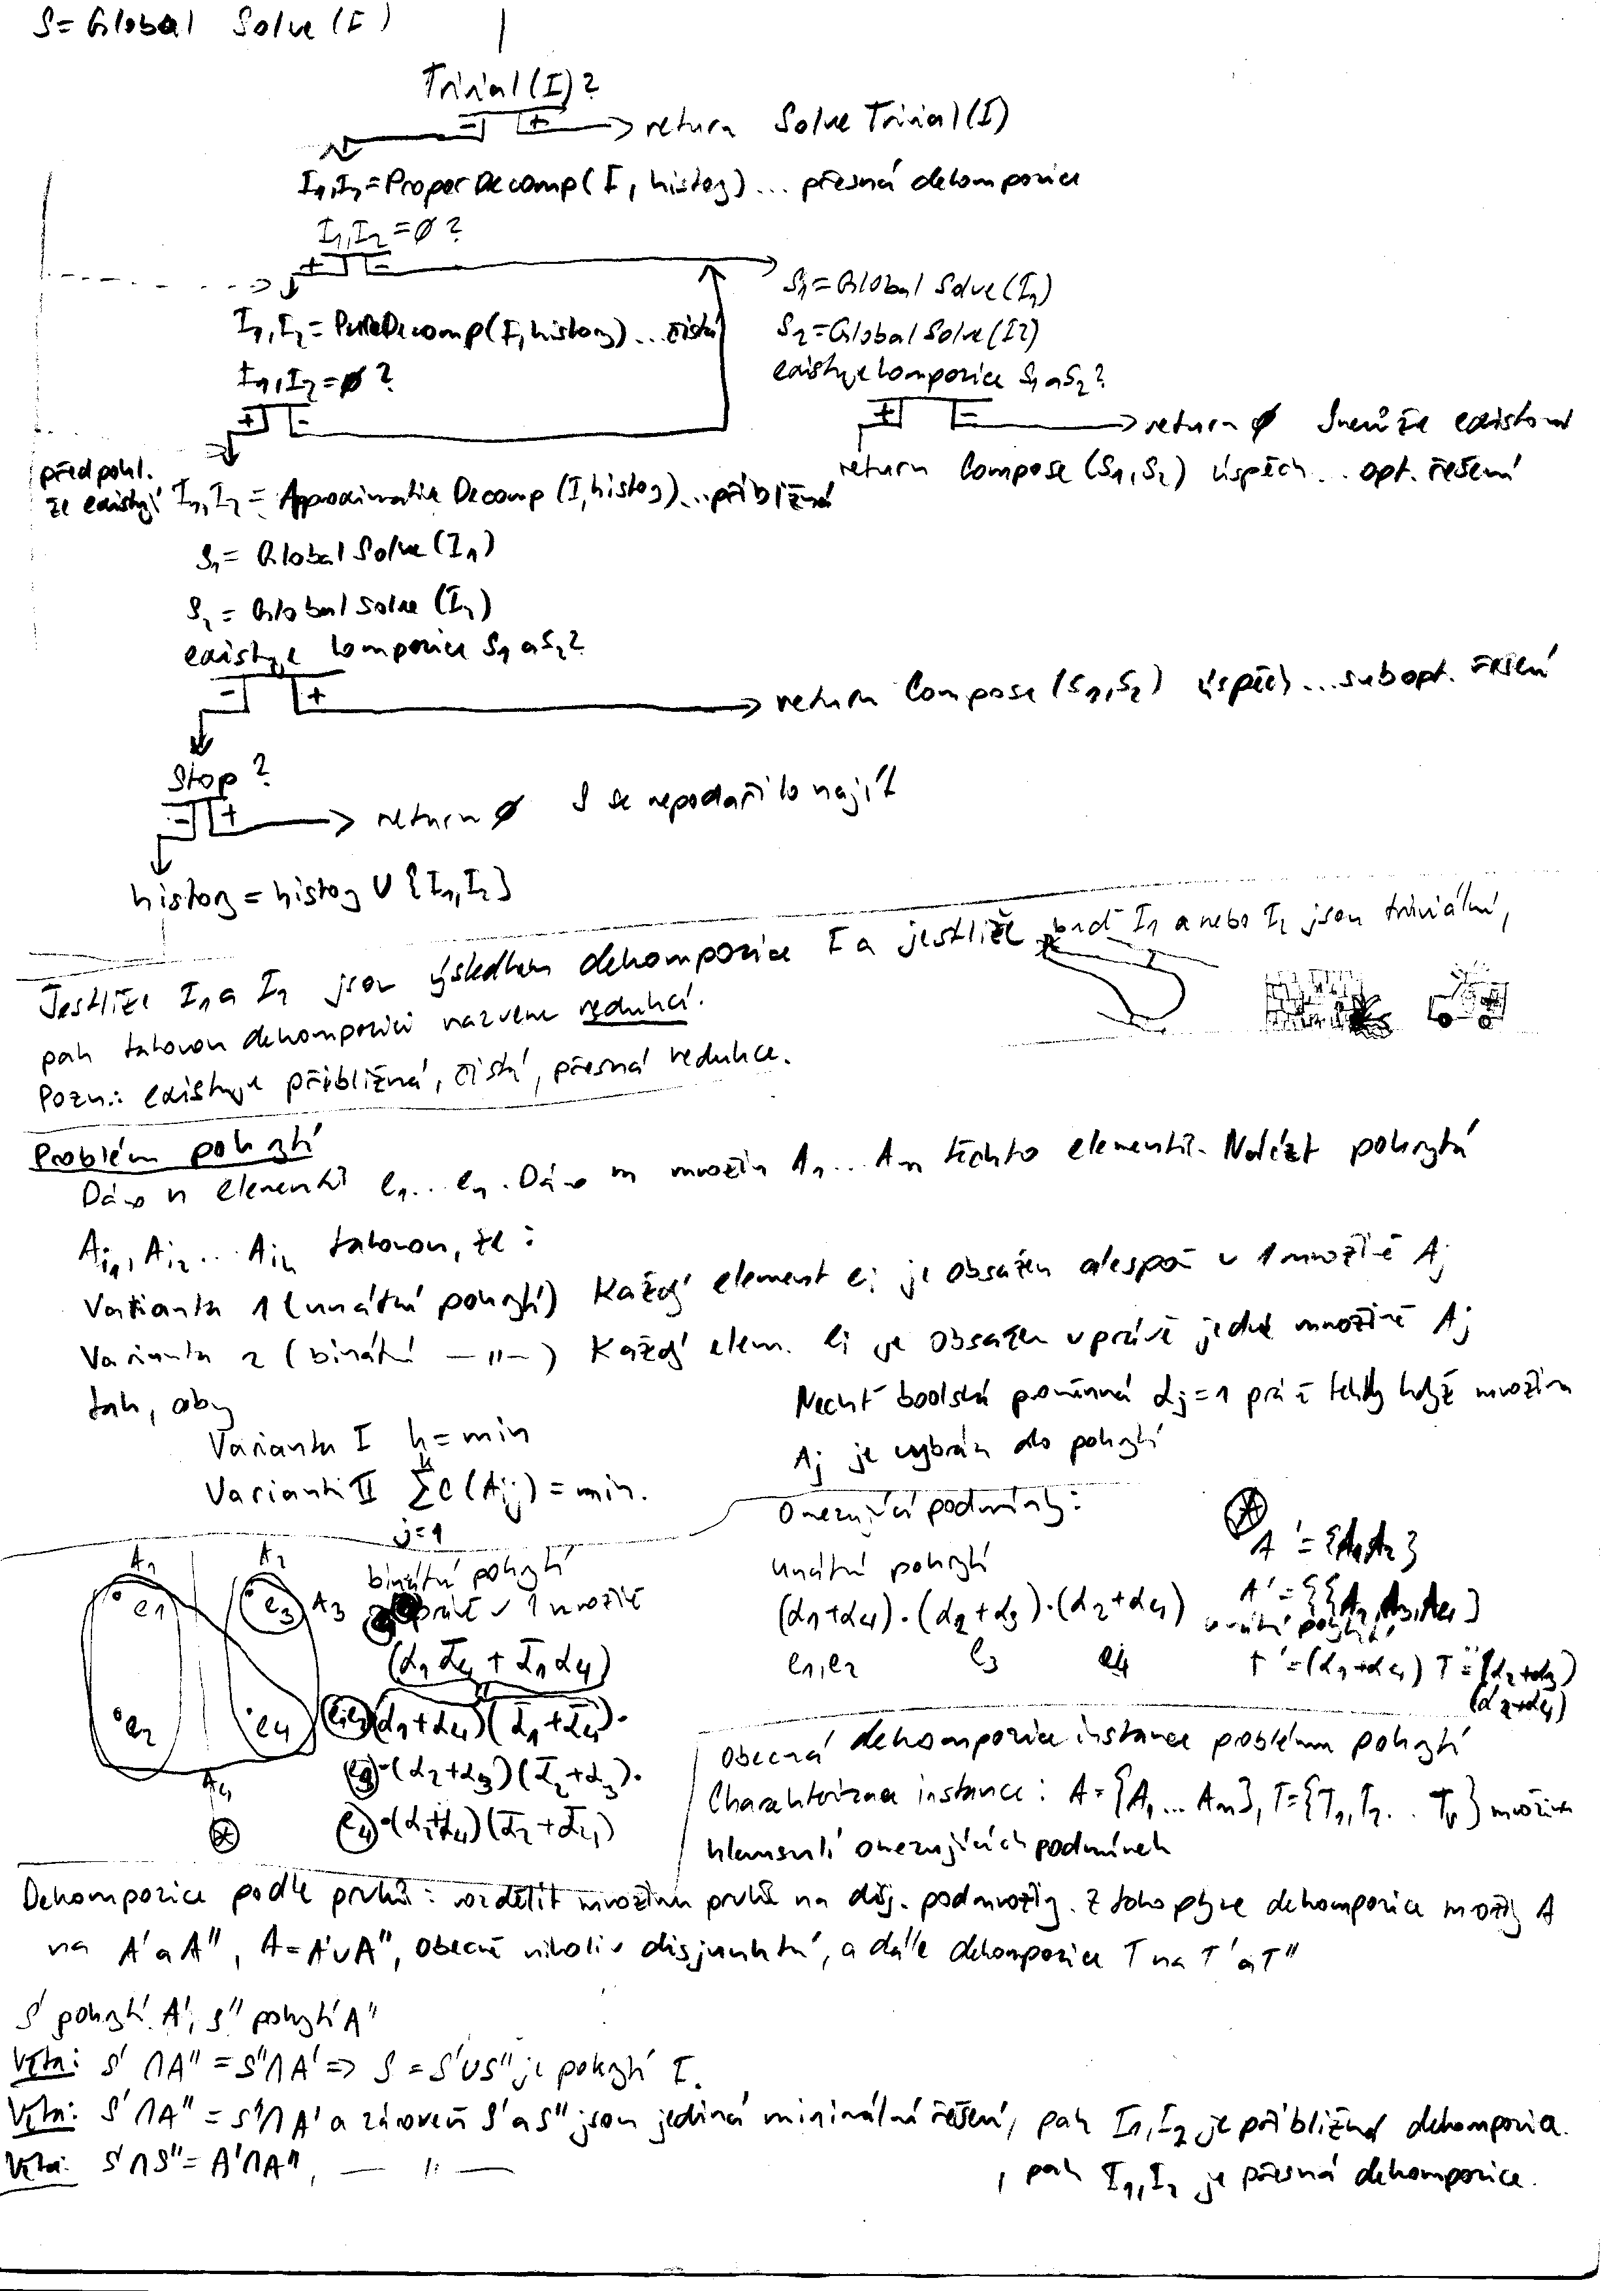 S = Global Solve(I)
Trivial(I)?
- + → return Solve Trivial(I)
I1,I2 = ProperDecomp(I, history)... přesná dekompozice
I1,I2 = ∅ ?
+ -
S1 = Global Solve(I1)
I1,I2 = PureDecomp(I, history)... čistá
S2 = Global Solve(I2)
I1,I2 = ∅ ?
existuje kompozice S1 a S2?
+ -
+ - → return ∅ S nemůže existovat
return Compose(S1,S2) úspěch... opt. řešení
předpokl.
že existují
I1,I2 = Approximative Decomp(I, history)... přibližná
S1 = Global Solve(I1)
S2 = Global Solve(I2)
existuje kompozice S1 a S2?
- + → return Compose(S1,S2) úspěch... subopt. řešení
Stop?
- + → return ∅ S se nepodařilo najít
history = history ∪ {I1,I2}
Jestliže I1 a I2 jsou výsledkem dekompozice I a jestliže buď I1 a nebo I2 jsou triviální,
pak takovou dekompozici nazveme redukcí.
Pozn.: existuje přibližná, čistá, přesná redukce.
Problém pokrytí
Dáno n elementů e1... en. Dáno m množin A1... Am těchto elementů. Nalézt pokrytí
Ai1, Ai2... Aik takovou, že:
Varianta 1 (unátní pokrytí) Každý element ei je obsažen alespoň v 1 množině Aj
Varianta 2 (binátní —„—) Každý elem. ei je obsažen v právě jedné množině Aj
tak, aby
Varianta I k = min
Varianta II Σ C(Aij) = min.
k
j=1
Nechť boolská proměnná αj = 1 prá ě tehdy když množina
Aj je vybrána do pokrytí
Omezující podmínky:
unátní pokrytí
(α1+α4)·(α2+α3)·(α2+α4)
e1,e2 e3 e4
⊛
A' = {A1,A2}
unátní pokrytí
T' = (α1+α4) T'' = (α2+α3)
(α2+α4)
A1 A2
e1 e3 A3
e2 e4
A4
⊛
binátní pokrytí
právě v 1 množině
(α1ᾱ4 + ᾱ1α4)
e1e2 (α1+α4)(ᾱ1+ᾱ4)·
e3 ·(α2+α3)(ᾱ2+ᾱ3)·
e4 ·(α2+α4)(ᾱ2+ᾱ4)
Obecná dekompozice instance problému pokrytí
Charakterizace instance: A = {A1... Am}, T = {T1,T2... Tr} množina
klausulí omezujících podmínek
Dekompozice podle prvků: rozdělit množinu prvků na disj. podmnožiny. Z toho plyne dekompozice množiny A
na A' a A'', A = A'∪A'', obecně nikoliv disjunktní, a dále dekompozice T na T' a T''
S' pokrytí A', S'' pokrytí A''
Věta: S' ∩ A'' = S'' ∩ A' => S = S'∪S'' je pokrytí I.
Věta: S' ∩ A'' = S'' ∩ A' a zároveň S' a S'' jsou jediná minimální řešení, pak I1,I2 je přibližná dekompozice.
Věta: S' ∩ S'' = A' ∩ A'', —„— , pak I1,I2 je přesná dekompozice.